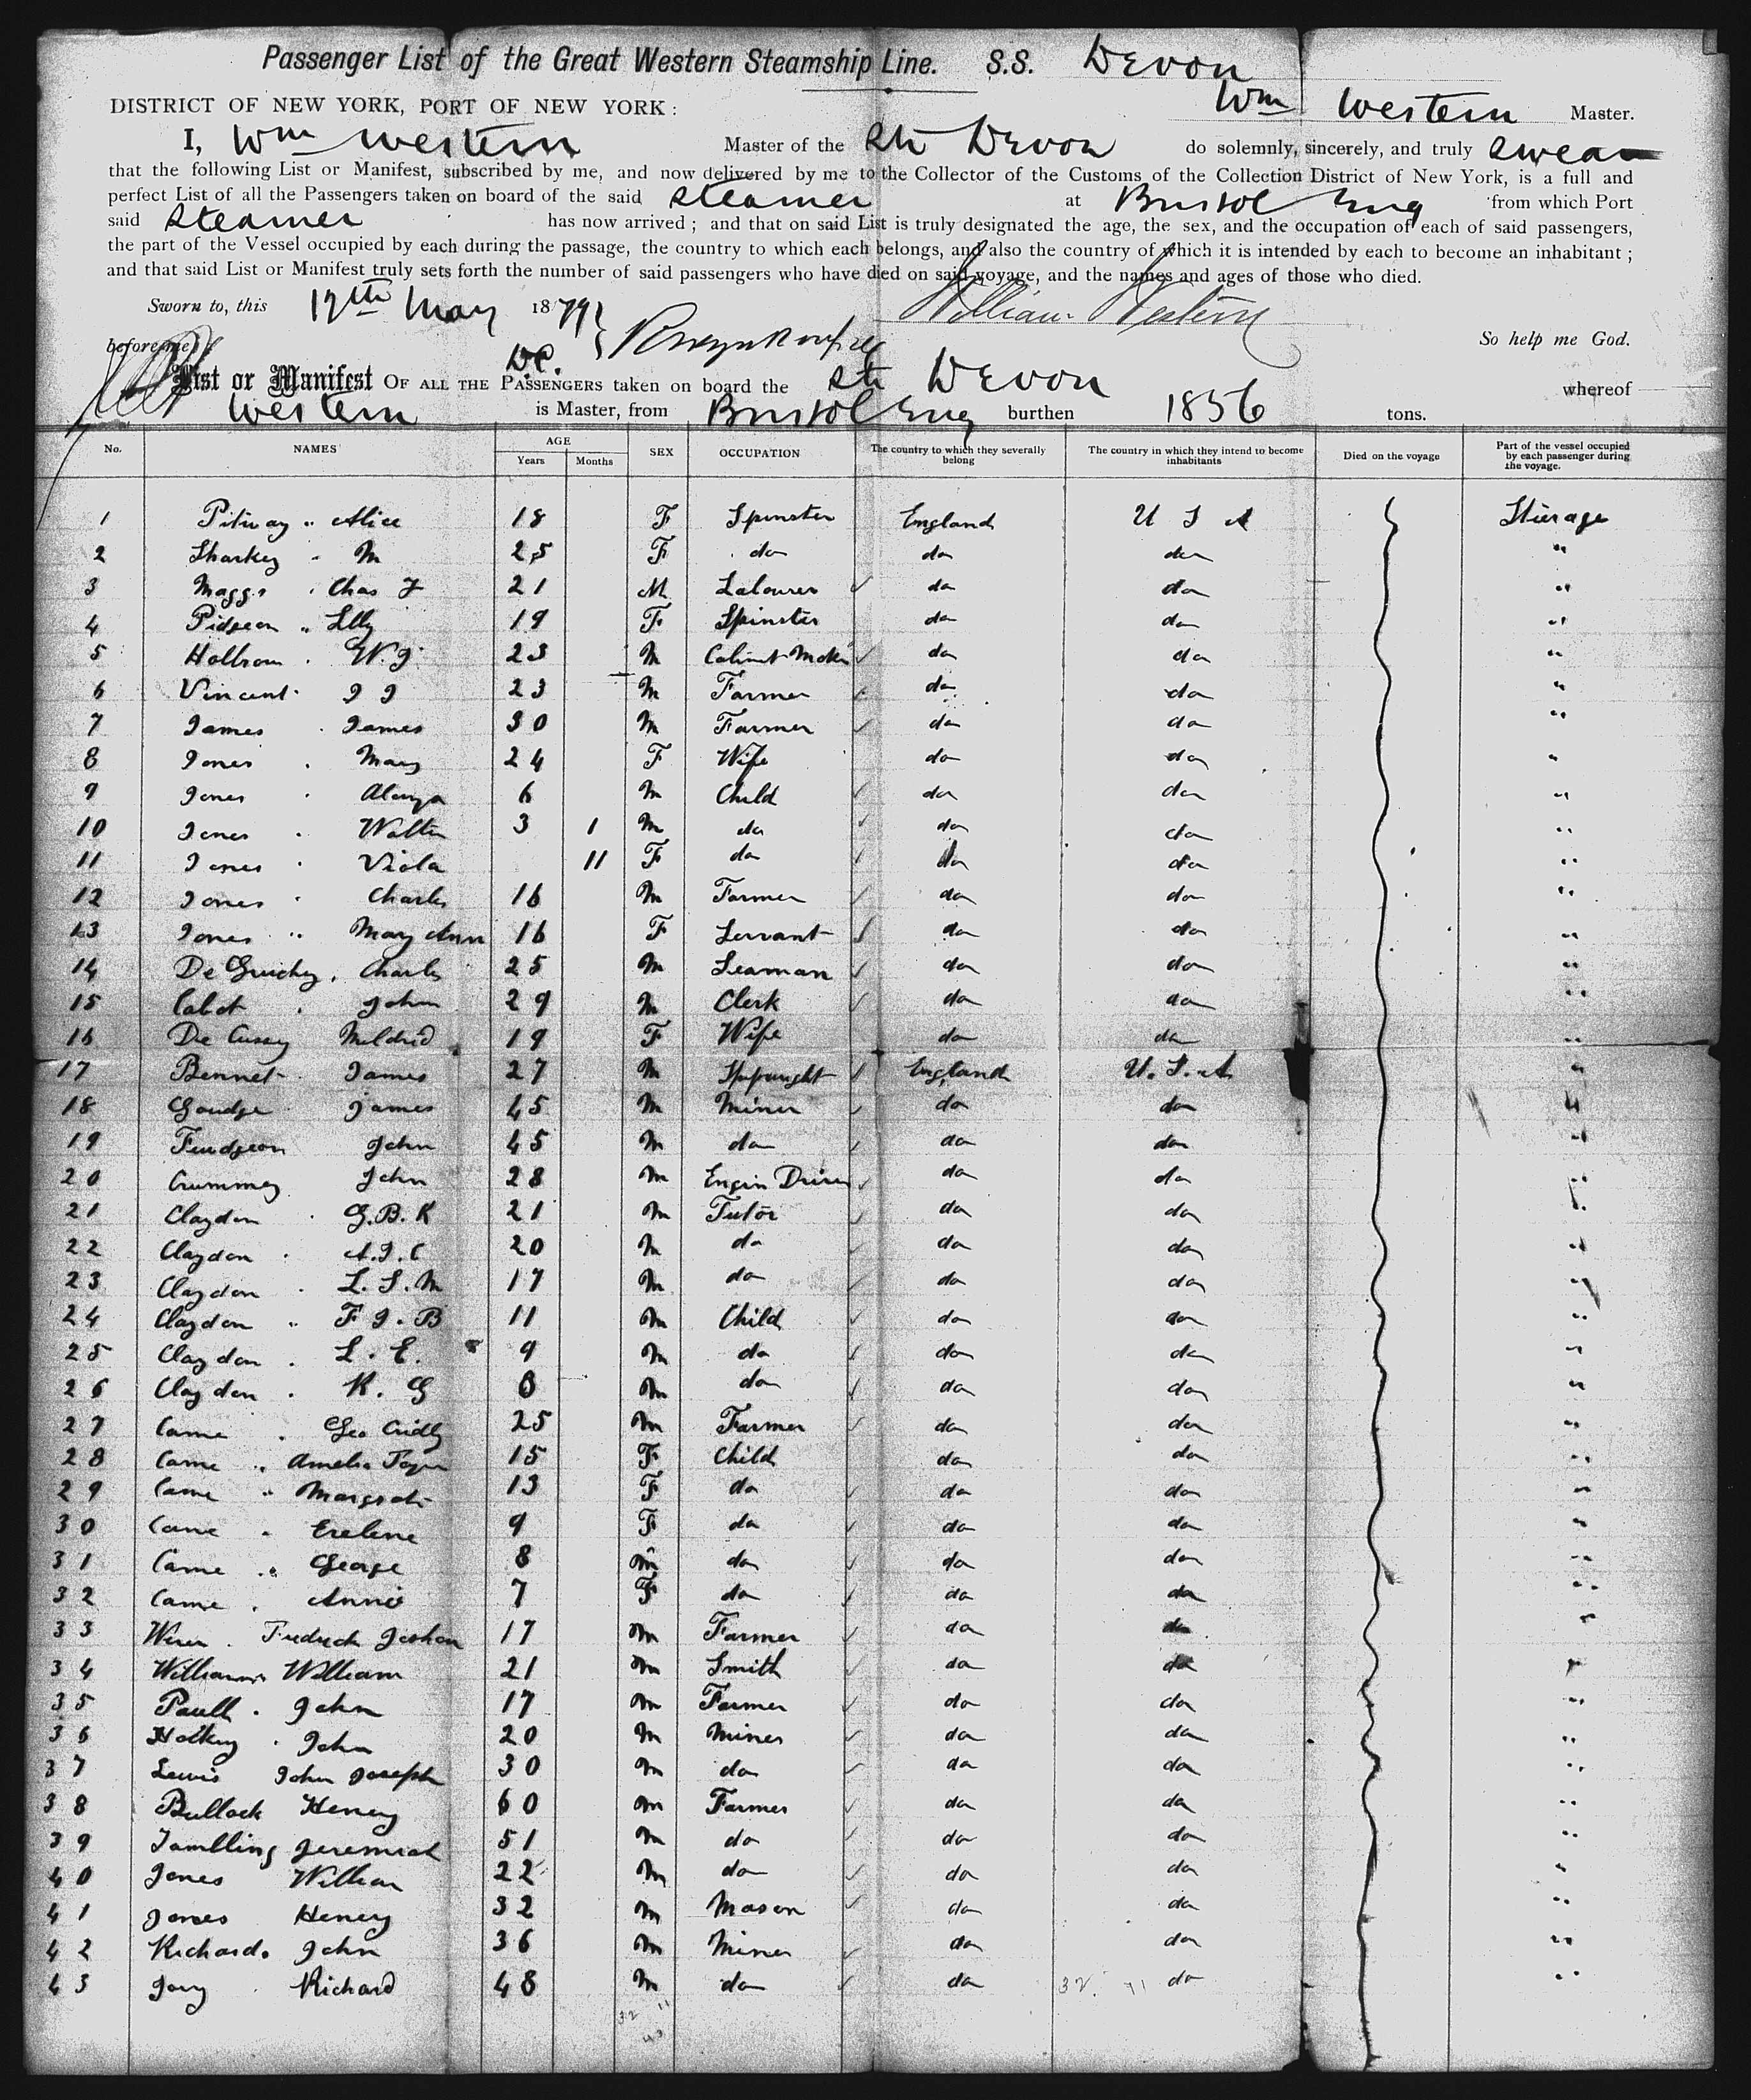 Passenger List of the Great Western Steamship Line. S.S. Devon
DISTRICT OF NEW YORK, PORT OF NEW YORK: Wm Western Master.
I, Wm Western Master of the Str Devon do solemnly, sincerely, and truly swear
that the following List or Manifest, subscribed by me, and now delivered by me to the Collector of the Customs of the Collection District of New York, is a full and
perfect List of all the Passengers taken on board of the said steamer at Bristol Eng from which Port
said Steamer has now arrived; and that on said List is truly designated the age, the sex, and the occupation of each of said passengers,
the part of the Vessel occupied by each during the passage, the country to which each belongs, and also the country of which it is intended by each to become an inhabitant;
and that said List or Manifest truly sets forth the number of said passengers who have died on said voyage, and the names and ages of those who died.
Sworn to, this 12th May 1879 William Western
before me So help me God.
D.C.
List or Manifest OF ALL THE PASSENGERS taken on board the Str Devon whereof
Western is Master, from Bristol Eng burthen 1856 tons.
No. NAMES AGE Years Months SEX OCCUPATION The country to which they severally belong The country in which they intend to become inhabitants Died on the voyage Part of the vessel occupied by each passenger during the voyage.
1 Pitway " Alice 18 F Spinster England U S A Stierage
2 Sharkey " M 25 F do do do "
3 Maggs . Chas F 21 M Labourer do do "
4 Pidgeon " Lilly 19 F Spinster do do "
5 Holbrow . W.J. 23 M Cabinet Maker do do "
6 Vincent . J J 23 M Farmer do do "
7 James . James 30 M Farmer do do "
8 Jones . Mary 24 F Wife do do "
9 Jones . 6 M Child do do "
10 Jones . Walter 3 1 M do do do "
11 Jones . Viola 11 F do do do "
12 Jones . Charles 16 M Farmer do do "
13 Jones " Mary Ann 16 F Servant do do "
14 De Gruchy, Charles 25 M Seaman do do "
15 Cabot . John 29 M Clerk do do "
16 De Cussy Mildred 19 F Wife do do "
17 Bennet James 27 M England U.S.A "
18 Goudge James 45 M Miner do do "
19 Fudgeon John 45 M do do do "
20 Crummey John 28 M Engin Driver do do "
21 Claydon . G.B.K 21 M Tutor do do "
22 Claydon . A.J.C 20 M do do do "
23 Claydon . L.S.M 17 M do do do "
24 Claydon " F J. B 11 M Child do do "
25 Claydon . L. E. 9 M do do do "
26 Claydon . R. G 8 M do do do "
27 Came . Geo 25 M Farmer do do "
28 Came " Amelia 15 F Child do do "
29 Came " 13 F do do do "
30 Came " Eveline 9 F do do do "
31 Came " George 8 M do do do "
32 Came . Annie 7 F do do do "
33 . Fredrick 17 M Farmer do do "
34 Williams William 21 M Smith do do "
35 Paull . John 17 M Farmer do do "
36 Hosking . John 20 M Miner do do "
37 Lewis John Joseph 30 M do do do "
38 Bullock Henery 60 M Farmer do do "
39 Tamblling Jeremiah 51 M do do do "
40 Jones William 22 M do do do "
41 Jones Henery 32 M Mason do do "
42 Richards John 36 M Miner do do "
43 Jory Richard 48 M do do do "
32 11
32 11
43